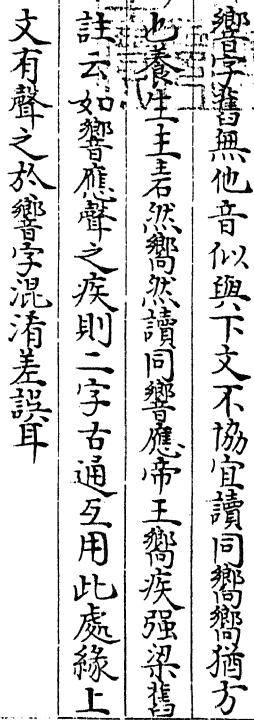 響字舊無他音似與下文不協宜讀同嚮嚮猶方
也養生主砉然嚮然讀同響應帝王嚮疾强梁舊
註云如響應聲之疾則二字古通互用此處緣上
文有聲之於響字混淆差誤耳